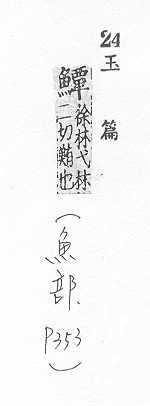 24
玉篇
鱏 徐林弋林
二切鮪也
(魚部.
P353)